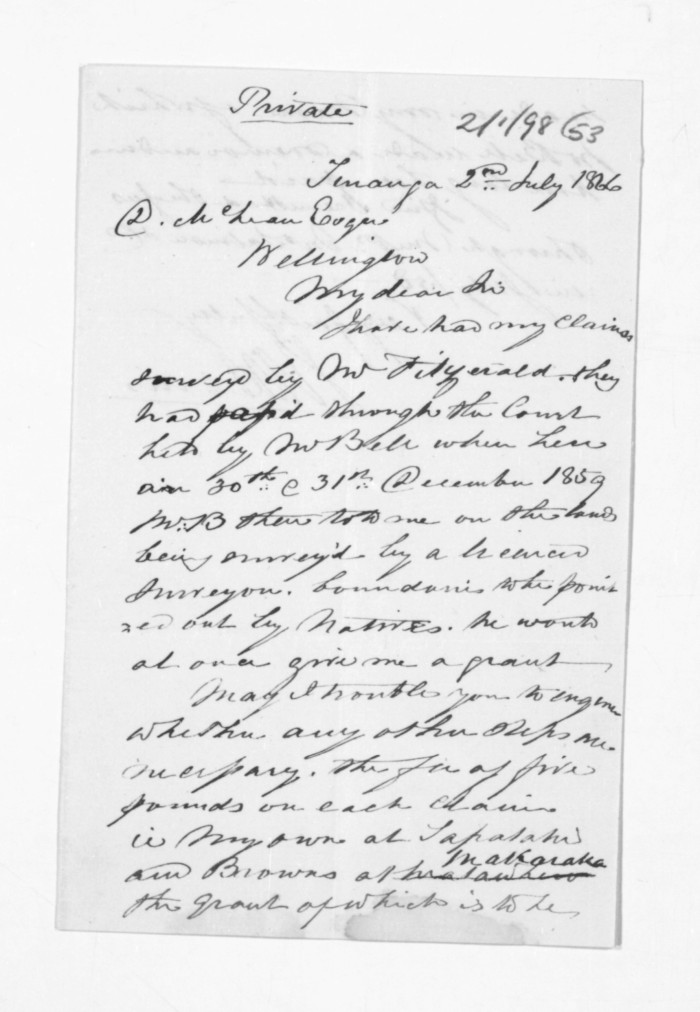 Private
2/1/98 (53
Turanga 2nd July 1866
D. McLean Esqre
Wellington
My dear Sir
I have had my claims
surveyd by Mr Fitzgerald. they
had pass'd through the Court
held by Mr Bell when here
on 30th & 31st December 1859
Mr. B then told me on the lands
being survey'd by a licenced
Surveyor. boundaries to be poin
ted out by Natives. he would
at once give me a grant
May I trouble you to enquire
whether any other steps are
necessary. the fee of five
pounds on each claim
ie My own at Tapatahi
and Browns at Makaraka
the grant of which is to be